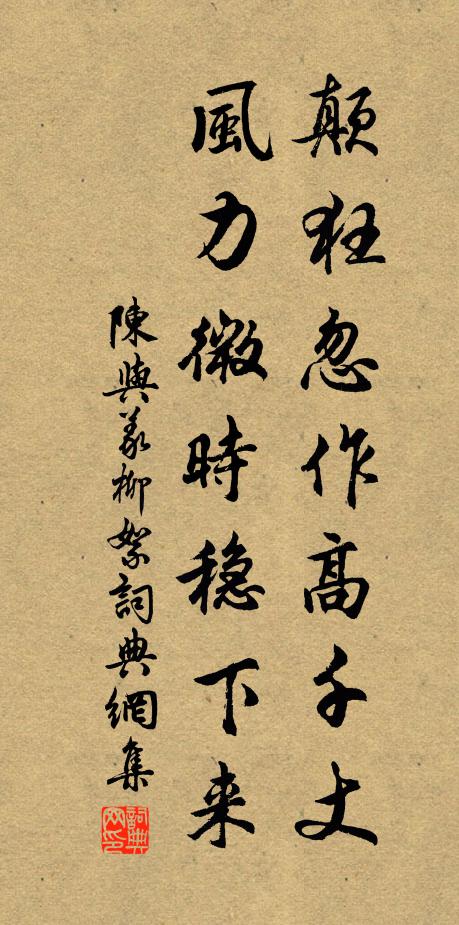 顛狂忽作高千丈
風力微時穩下来
陳與義柳絮詞典網集
詞典網印